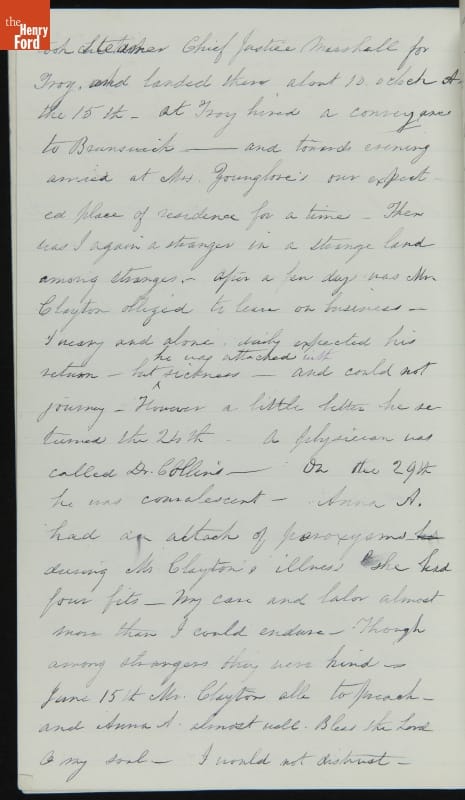 the
Henry
Ford
Steamer Chief Justice Marshall for
Troy, and landed there about 10 oclock A
the 15th - at Troy hired a conveyance
to Brunswick — and towards evening
arrived at Mrs. Younglove's our expect-
ed place of residence for a time - Then
was I again a stranger in a strange land
among strangers - After a few days was Mr.
Clayton obliged to leave on business -
I weary and alone, daily expected his
he was attacked with
return - but sickness - and could not
journey - However a little better he re-
turned the 24th - A physician was
called Dr. Collins — On the 29th
he was convalescent - Anna A.
had an attack of paroxysms
during Mr Clayton's illness she had
four fits - My care and labor almost
more than I could endure - Though
among strangers they were kind -
June 15th Mr. Clayton able to preach -
and Anna A. almost well. Bless the Lord
O my soul - I would not distrust -